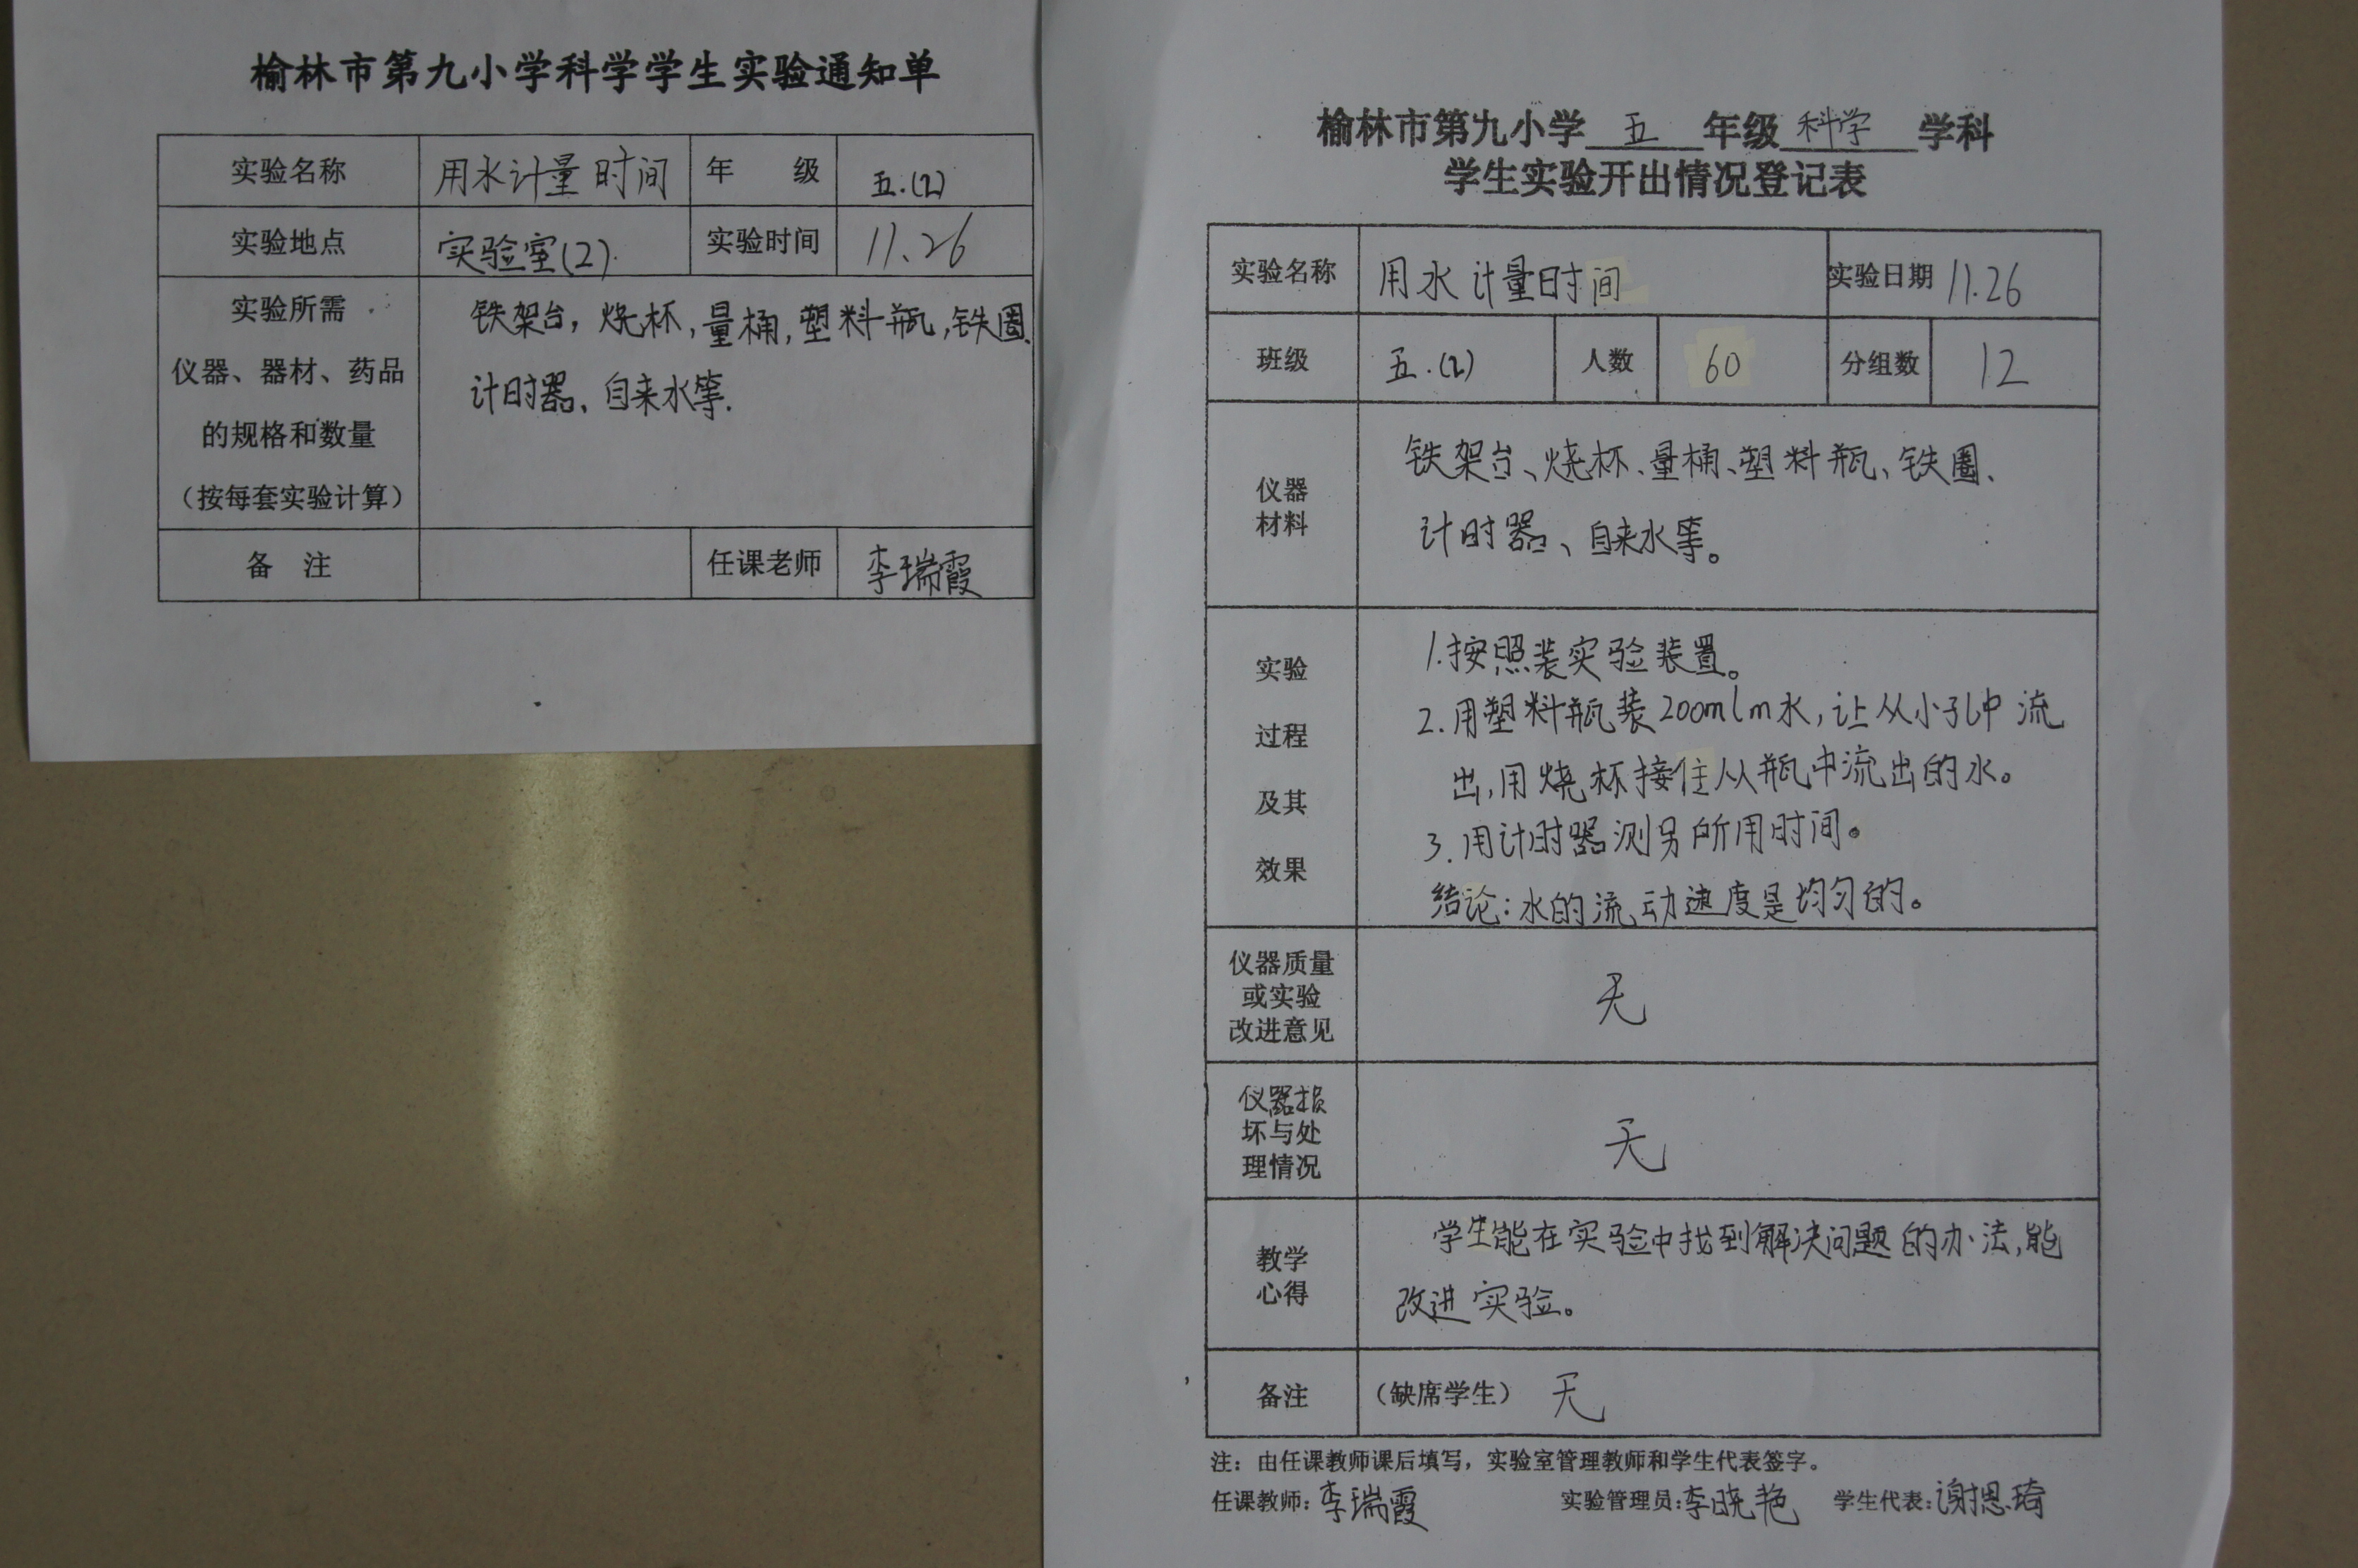 榆林市第九小学科学学生实验通知单
实验名称 用水计量时间 年 级 五.(2)
实验地点 实验室(2). 实验时间 11.26
实验所需
仪器、器材、药品
的规格和数量
（按每套实验计算）
铁架台，烧杯，量桶，塑料瓶，铁圈、
计时器、自来水等.
备 注 任课老师 李瑞霞
榆林市第九小学 五 年级 科学 学科
学生实验开出情况登记表
实验名称 用水计量时间 实验日期 11.26
班级 五.(2) 人数 60 分组数 12
仪器
材料
铁架台、烧杯、量桶、塑料瓶、铁圈、
计时器、自来水等。
实验
过程
及其
效果
1.按照装实验装置。
2.用塑料瓶装200mlm水，让从小孔中流
出，用烧杯接住从瓶中流出的水。
3.用计时器测另所用时间。
结论：水的流动速度是均匀的。
仪器质量
或实验
改进意见
无
仪器损
坏与处
理情况
无
教学
心得
学生能在实验中找到解决问题的办法，能
改进实验。
备注 （缺席学生） 无
注：由任课教师课后填写，实验室管理教师和学生代表签字。
任课教师：李瑞霞 实验管理员：李晓艳 学生代表：谢恩琦